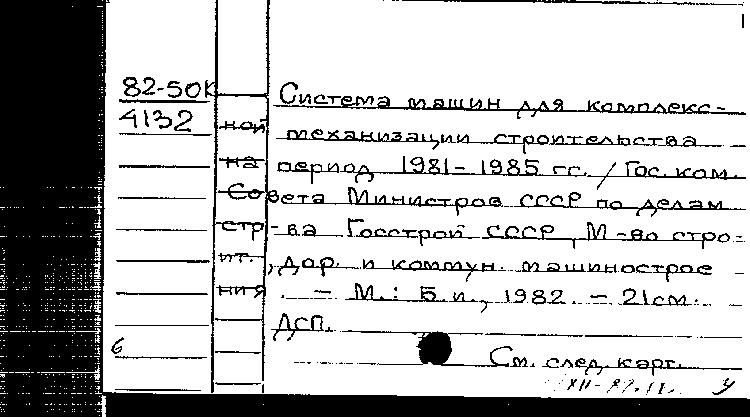 82-50К Система машин для комплекс-
4132 ной механизации строительства
на период 1981-1985 гг. / Гос. ком.
Совета Министров СССР по делам
стр-ва Госстрой СССР, М-во стро-
ит., дор. и коммун. машинострое
ния. - М.: Б.и., 1982. - 21 см.
ДСП.
6 См. след. карт.